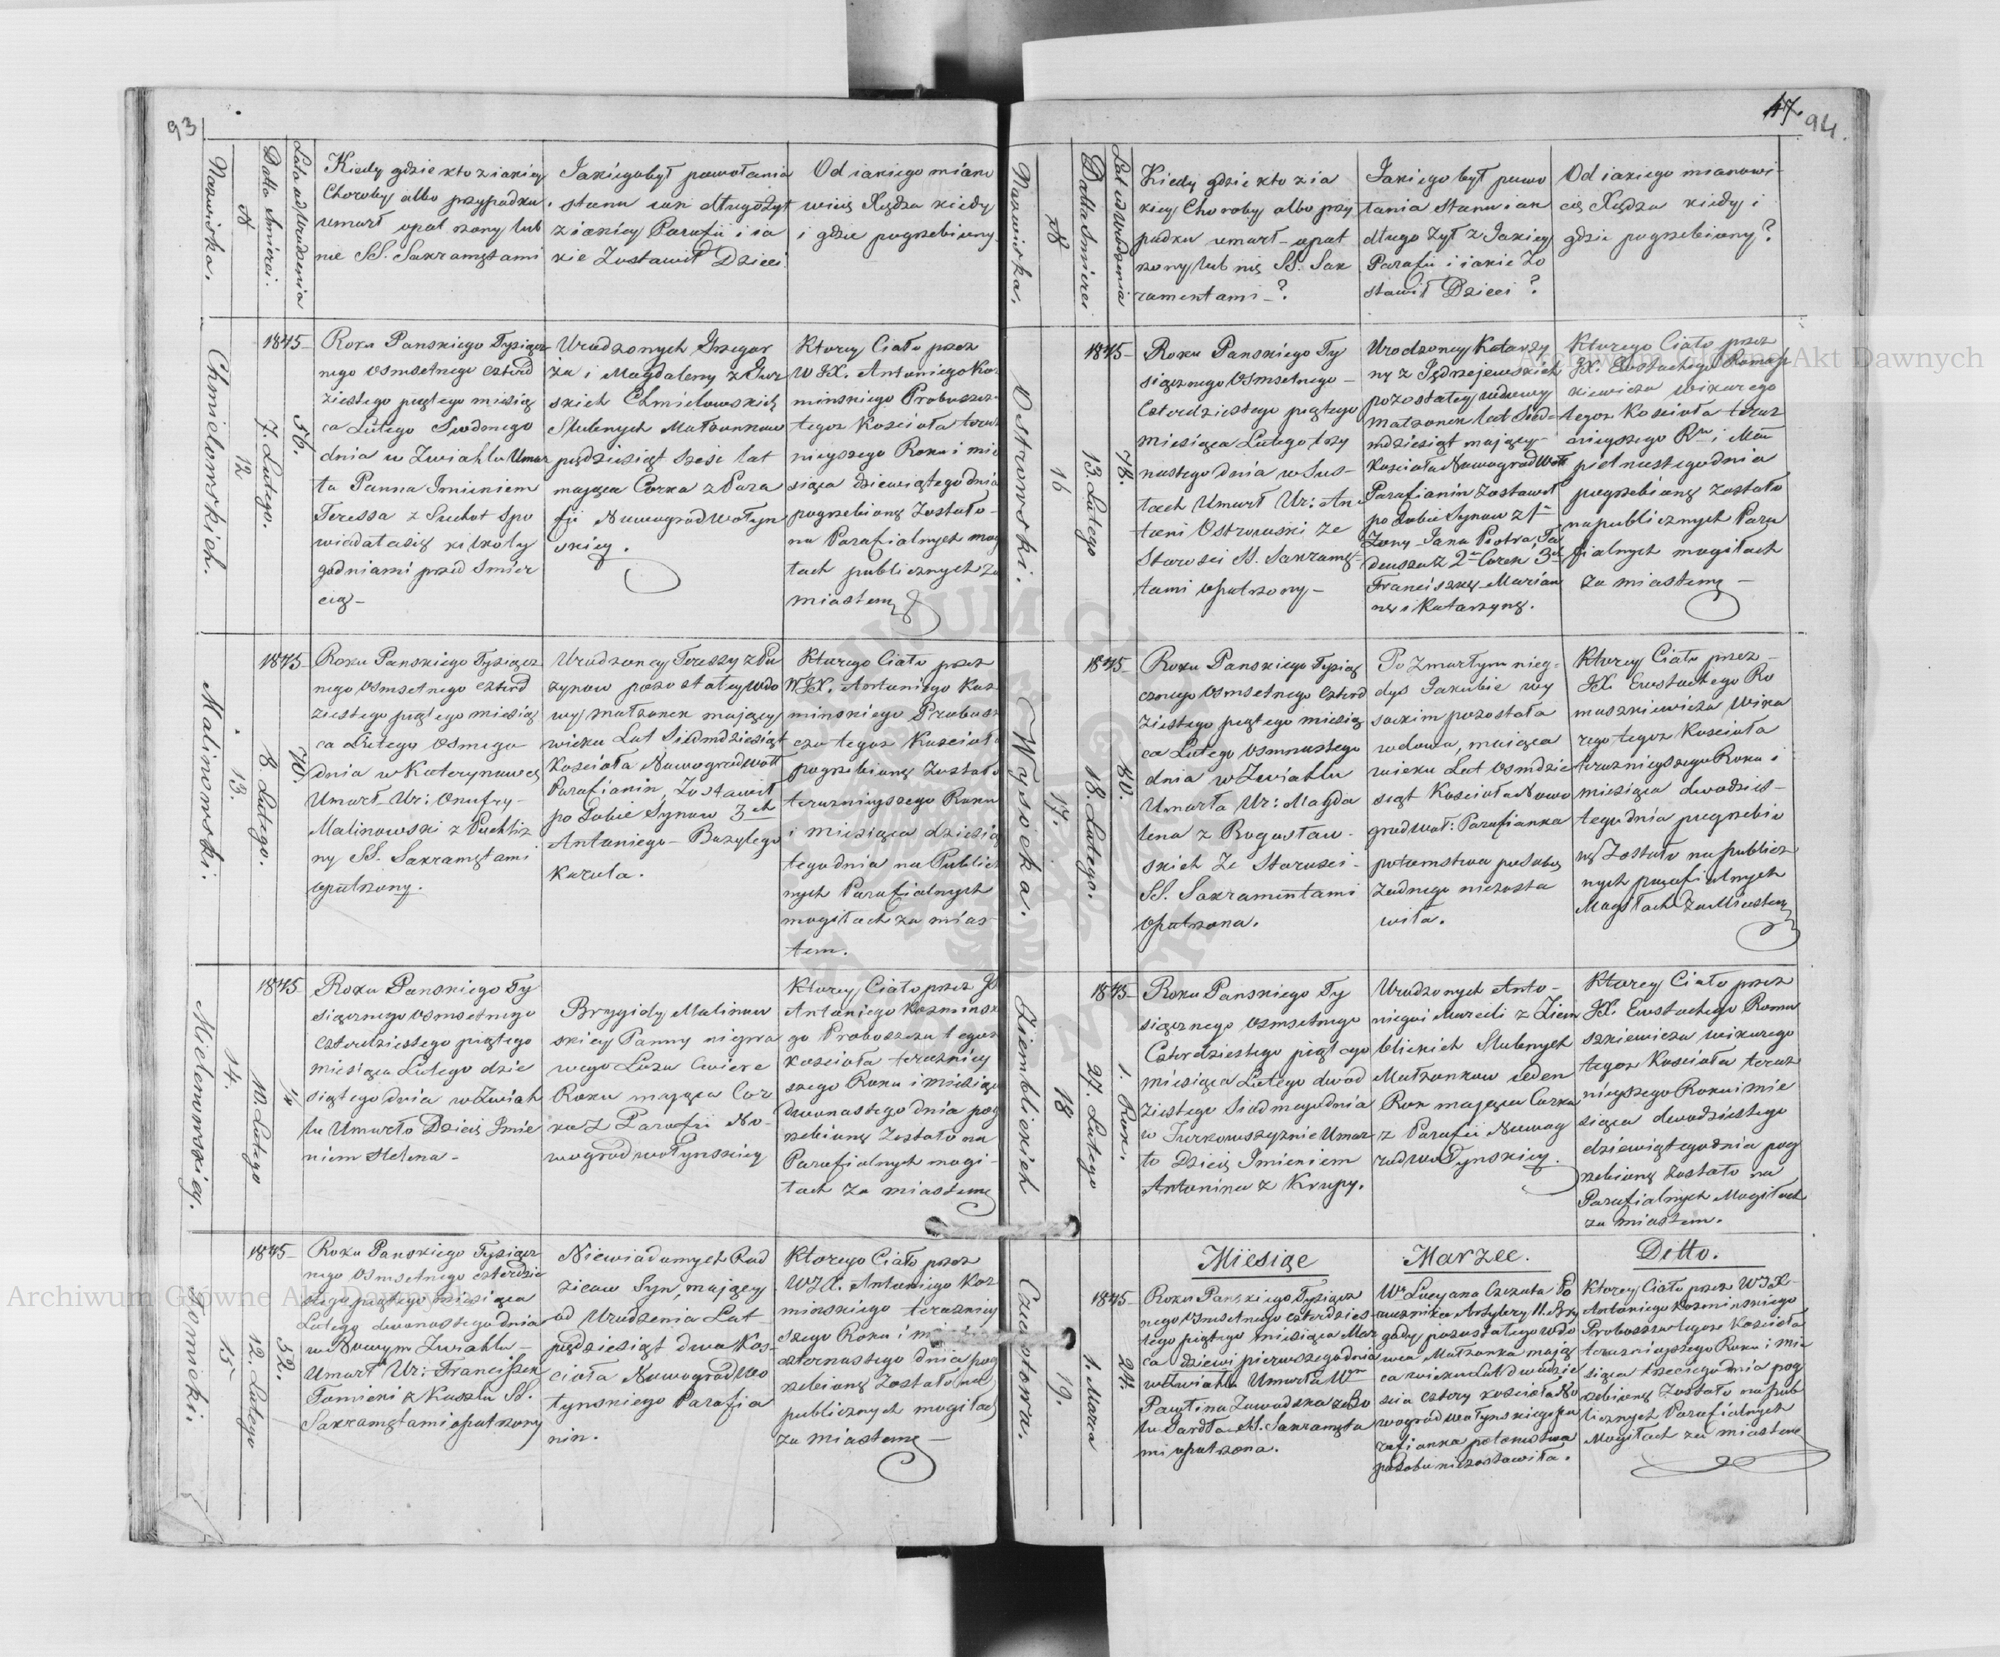 93
Nazwiska.
N
Datta Smierci.
Lata od Urodzenia
Kiedy gdzie kto z iakiey
Choroby albo przypadku
umarł opatrzony lub
nie SS. Sakramętami
Iakiego był powołania
stanu iak długo żył
z iakiey Parafii i ia
kie Zostawił Dzieci
Od iakiego miano
wicie Xiędza kiedy
i gdzie pogrzebiony
Chmielowskich.
12
1845
7. Lutego.
56.
Roku Panskiego Tysiącz
nego osmsetnego czterd
ziestego piątego miesią
ca Lutego Siodmego
dnia w Zwiahlu Umar
ła Panna Imieniem
Teressa z Suchot spo
wiadała się kilko ty
godniami przed Smier
cią
Urodzonych Grzegor
za i Magdaleny z
skich Chmielowskich
Slubnych Małżonkow
piędziesiąt szesc lat
mająca Corka z Para
fii Nowogrodwołyn
skiey.
Ktorey Ciało przez
WJX. Antoniego Ko
minskiego Proboszcz
tegoz Koscioła teraz
nieyszego Roku i mie
siąca dziewiątego dnia
pogrzebione Zostało
na Parafialnych mog
łach publicznych za
miastem
Malinowski.
13.
1845
8 Lutego.
70.
Roku Panskiego Tysiącz
nego osmsetnego czterd
ziestego piątego miesią
ca Lutego osmego
dnia w Katerynowce
Umarł Ur: Onufry
Malinowski z Puchliz
ny SS. Sakramętami
opatrzony.
Urodzoney Teressy z Pu
zynow pozostałey wdo
wy małżonek maiący
wieku Lat Siedmdziesiąt
Koscioła Nowogrodwoł
Parafianin, Zostawił
po Sobie Synow 3ch
Antoniego Bazylego
Karola.
Ktorego Ciało przez
WJX. Antoniego Koz
minskiego Probosz
cza tegoz Koscioła
pogrzebione Zostało
terazniejszego Roku
i miesiąca dziesią
tego dnia na Publicz
nych Parafialnych
mogiłach za mias
tem.
Mielenowskiey.
14.
1845
10. Lutego
1/4
Roku Panskiego Ty
siącznego osmsetnego
czterdziestego piątego
miesiąca Lutego dzie
siątego dnia w Zwiah
lu Umarło Dziecię Imie
niem Helena
Brygidy Malinow
skiey Panny niepra
wego Loża cwierc
Roku mająca Cor
ka Z Parafii No
wogrodwołynskiey
Ktorey Ciało przez JX
Antoniego Kozminsk
go Proboszcza tegoz
koscioła terazniey
szego Roku i miesiąca
dwonastego dnia pog
rzebione Zostało na
Parafialnych mogi
łach za miastem
Tomicki.
15
1845
12. Lutego
52.
Roku Panskiego Tysiącz
nego osmsetnego czterdzie
stego piątego miesiąca
Lutego dwonastego dnia
w Nowym Zwiahlu
Umarł Ur: Franciszek
Tomicki z Kaszlu SS.
Sakramętami opatrzony
Niewiadomych Rod
zicow Syn, mający
od Urodzenia Lat
pięddziesiąt dwa Kos
cioła Nowogrodwo
łynskiego Parafia
nin.
Ktorego Ciało przez
WJX. Antoniego Koz
minskiego terazniey
szego Roku i miesiąca
czternastego dnia pog
rzebione Zostało na
publicznych mogiłach
za miastem
47.
94.
Nazwiska.
N
Datta Smierci
Lat od Urodzenia
Kiedy gdzie kto z ia
kiey Choroby albo przy
padku umarł opat
rzony lub nie SS. Sak
ramentami?
Jakiego był powo
łania Stanu iak
długo żył z Jakiey
Parafii i iakie Zo
stawił Dzieci?
Od iakiego mianowi
cie Xiędza kiedy i
gdzie pogrzebiony?
Ostrowski.
16
1845
13. Lutego
78.
Roku Panskiego Ty
siącznego Osmsetnego
Czterdziestego piątego
miesiąca Lutego trzy
nastego dnia w Sus
łach Umarł Ur: An
toni Ostrowski ze
Starosci SS. Sakramę
tami opatrzony
Urodzoney Katarzy
ny z Jędrzejewskich
pozostałey wdowy
małzonek lat Sied
mdziesiąt mający
Koscioła Nowogrodwoł
Parafianin Zostawił
po Sobie Synow z 1
Zony Jana Piotra Ta
deusza z 2 Corek 3
Franciszkę Marian
nę i Katarzynę.
Ktorego Ciało przez
JX. Eustachego Romasz
kiewicza wikarego
tegoz Koscioła teraz
nieyszego Rku i Mca
pietnastego dnia
pogrzebione Zostało
na publicznych Para
fialnych mogiłach
za miastem
Wysocka.
17.
1845
18. Lutego.
80.
Roku Panskiego Tysiąc
cznego osmsetnego czterd
ziestego piątego miesią
ca Lutego osmnastego
dnia w Zwiahlu
Umarła Ur: Magda
lena z Rogusław
skich Ze Starosci
SS. Sakramentami
opatrzona.
Po Zmarłym nieg
dys Jakubie wy
sockim pozostała
wdowa, maiąca
wieku Lat osmdzie
siąt Koscioła Nowo
grodwoł: Parafianka
potomstwa po Sobie
żadnego niezosta
wiła.
Ktorey Ciało przez
JX. Eustachego Ro
maszkiewicza Wika
rego tegoz Koscioła
teraznieyszego Roku i
miesiąca dwodzies
tego dnia pogrzebio
ne Zostało na publicz
nych parafialnych
Mogiłach Za Miastem
Ziemblickich
18
1845
27. Lutego
1. Rok.
Roku Panskiego Ty
siącznego osmsetnego
Czterdziestego piątego
miesiąca Lutego dwod
ziestego Siodmego dnia
w Jurkowszczyznie Umar
ło Dziecię Imieniem
Antonina z Krupy.
Urodzonych Anto
niego i Marceli z Ziem
blickich Slubnych
Małzonkow ieden
Rok mająca Corka
z Parafii Nowog
rodwołynskiey.
Ktorey Ciało przez
JX. Eustachego Roma
szkiewicza wikarego
tegoz Koscioła teraz
nieyszego Roku i mie
siąca dwodziestego
dziewiątego dnia pog
rzebione Zostało na
Parafialnych Mogiłach
za miastem.
Miesiąc
Marzec.
Ditto.
Czaszłowa.
19.
1845
1. Marca
24.
Roku Panskiego Tysiącz
nego osmsetnego czterdzies
tego piątego miesiąca Mar
ca pierwszego dnia
w Zwiahlu Umarła Wa
Pawlina Zawadska z Bo
lu Gardła SS. Sakramęta
mi opatrzona.
Wo Lucyana Po
rucznika Artylery 11. Bry
gady pozostałego wdo
wca Małzonka mają
ca wieku Lat dwadzie
scia cztery koscioła No
wogrodwołynskiego pa
rafianka potomstwa
po Sobie niezostawiła.
Ktorey Ciało przez WJX
Antoniego Kozminskiego
Proboszcza tegoz Koscioła
teraznieyszego Roku i mie
siąca trzeciego dnia pog
rzebione Zostało na pub
licznych Parafialnych
Mogiłach za miastem
Archiwum Główne Akt Dawnych
Archiwum Główne Akt Dawnych